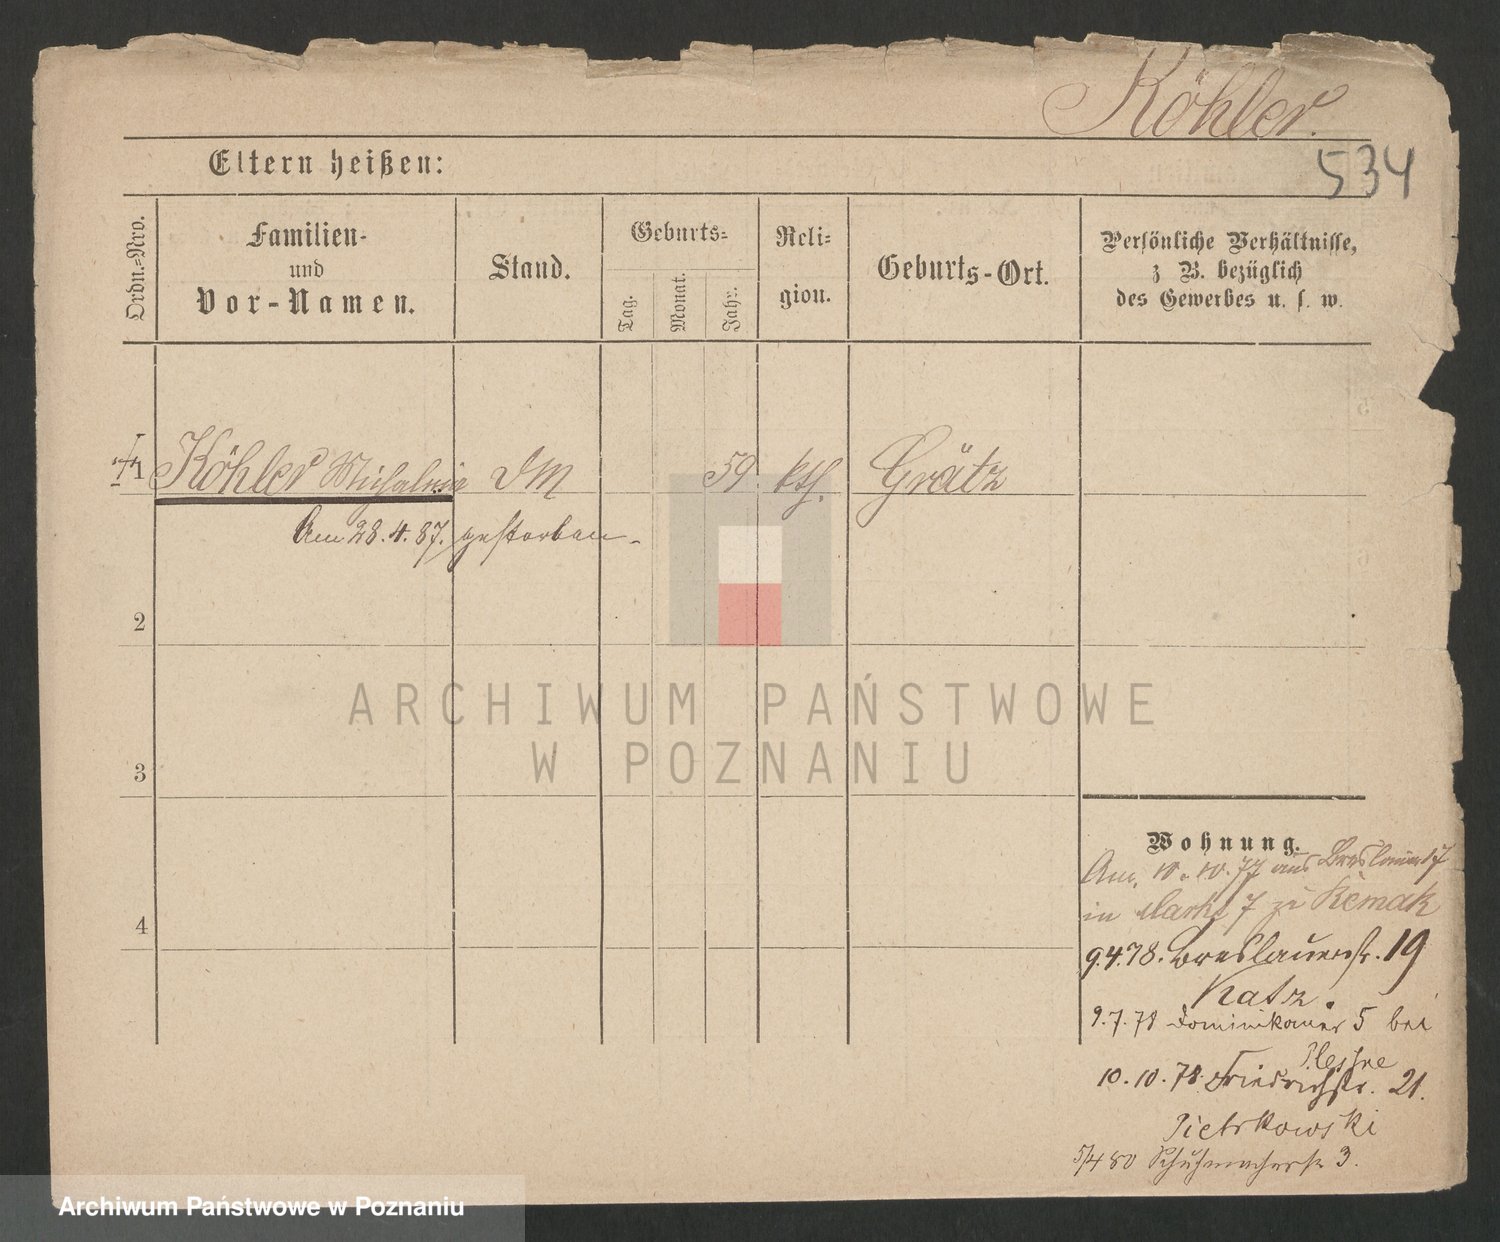 Köhler.
534
Eltern heißen:
Ordn.-Nro.
Familien-
und
Vor-Namen.
Stand.
Geburts-
Tag.
Monat.
Jahr.
Reli-
gion.
Geburts-Ort.
Persönliche Verhältnisse,
z B. bezüglich
des Gewerbes u. s. w.
1 Köhler Michalina DM 59 kth. Grätz
Am 28.4.87. gestorben.
2
3
4
Wohnung.
Am 10.10.77 aus Breslauer 17
in Markt 7 zu Remak
9.4.78. Breslauerstr. 19
Katz.
9.7.78 Dominikaner 5 bei
Plessne
10.10.78. Friedrichstr. 21.
Pietrkowski
5/4 80 Schuhmacherstr 3.
ARCHIWUM PAŃSTWOWE
W POZNANIU
Archiwum Państwowe w Poznaniu